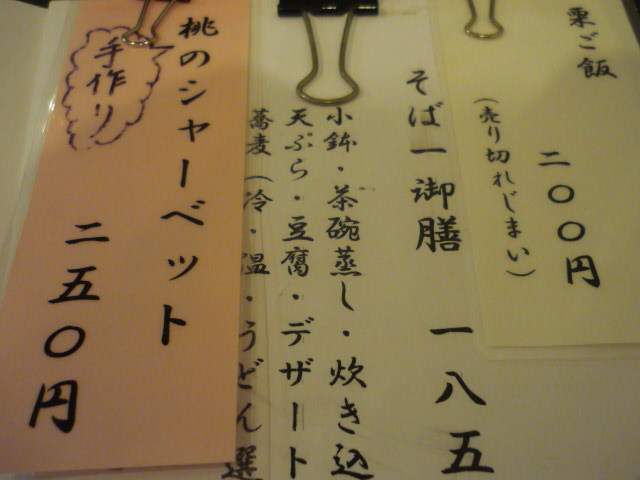 栗ご飯
二〇〇円
(売り切れじまい)
そば一御膳
一八五
小鉢・茶碗蒸し・炊き込
天ぷら・豆腐・デザート
蕎麦(冷・温・うどん選
桃のシャーベット
手作り
二五〇円